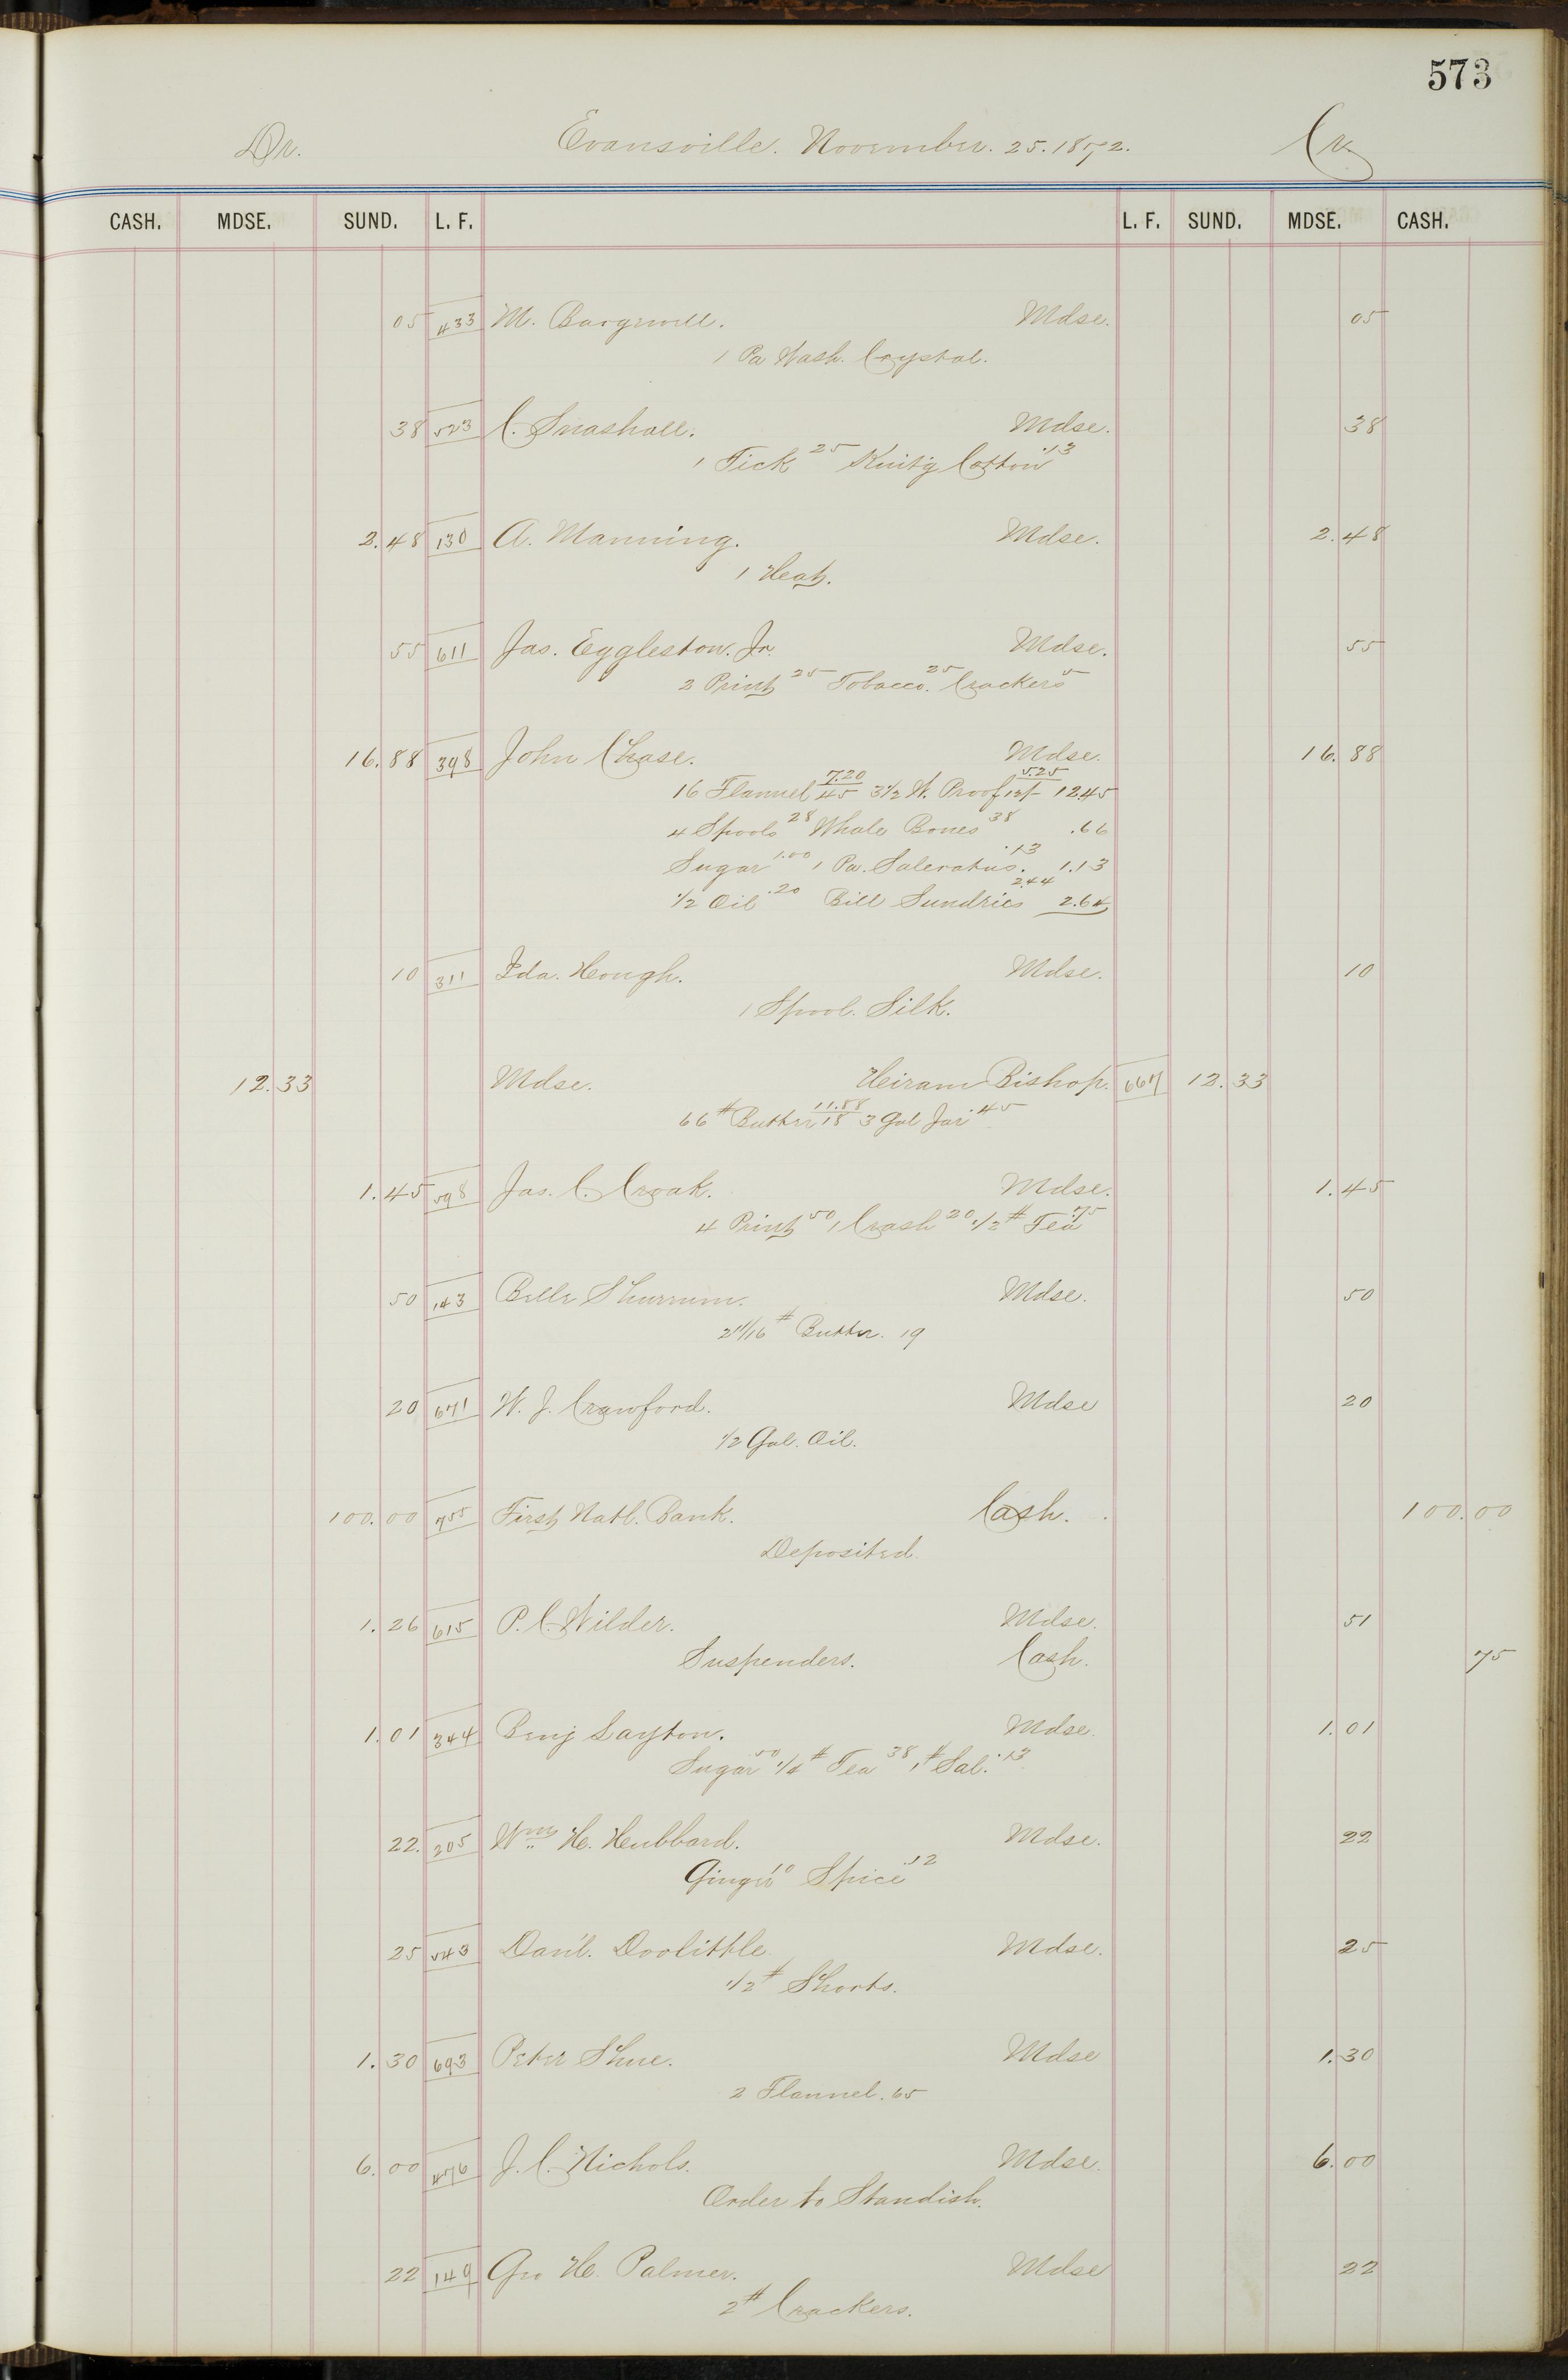 573
Dr. Evansville. November. 25. 1872. Cr.
CASH. MDSE. SUND. L. F. L. F. SUND. MDSE. CASH.
05 433 M. Mdse. 05
1 Pa Wash. Crystal.
38 523 C. Snashall. Mdse. 38
1 Tick 25 Knit'g Cotton .13
2.48 130 A. Manning. Mdse. 2.48
1 Heat.
55 611 Jas. Eggleston. Jr. Mdse. 55
2 Print 25 Tobacco. 25 Crackers 5
16.88 398 John Chase. Mdse. 16.88
16 Flannel 7.20/45 3 1/2 W. Proof 5.25/12/- 12.45
4 Spools 28 Whale Bones 38 .66
Sugar 1.00 1 Pa. Saleratus. .13 1.13
1/2 Oil .20 Bill Sundries 2.44 2.64
10 311 Ida. Hough. Mdse. 10
1 Spool. Silk.
12.33 Mdse. Heiram Bishop. 667 12.33
66 # Butter 11.88/18 3 Gal Jar 45
1.45 598 Jas. C. Croak. Mdse. 1.45
4 Print 50 1 Crash 20 1/2 # Tea 75
50 143 Belle Shurrum. Mdse. 50
2 11/16 # Butter. 19
20 671 W. J. Crawford. Mdse 20
1/2 Gal. Oil.
100.00 755 First Natl. Bank. Cash. 100.00
Deposited.
1.26 615 P. C. Wilder. Mdse. 51
Suspenders. Cash. 75
1.01 344 Benj Layton. Mdse. 1.01
Sugar 50 1/4 # Tea 38 1 # Sal. .13
22. 205 Wm. H. Hubbard. Mdse. 22
Ginger 10 Spice .12
25 543 Dan'l. Doolittle Mdse. 25
1/2 # Shorts.
1.30 693 Peter Shue. Mdse 1.30
2 Flannel .65
6.00 476 J. C. Nichols. Mdse. 6.00
Order to Standish.
22 149 Geo H. Palmer. Mdse 22
2 # Crackers.